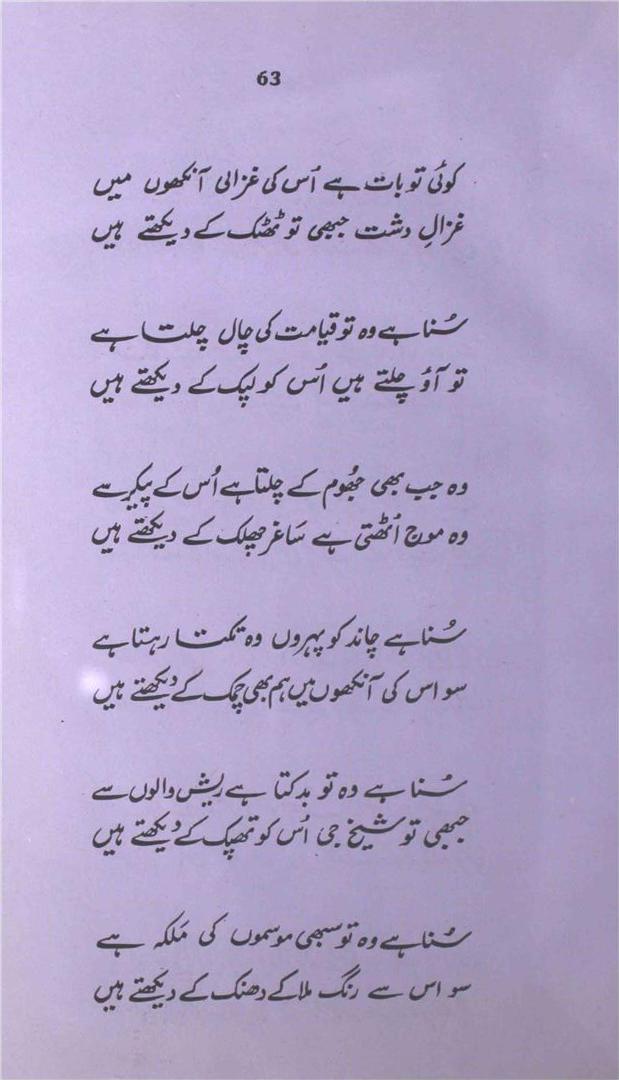 63
کوئی تو بات ہے اُس کی غزالی آنکھوں میں
غزالِ دشت جبھی تو ٹھٹک کے دیکھتے ہیں
سُنا ہے وہ تو قیامت کی چال چلتا ہے
تو آؤ چلتے ہیں اُس کو لپک کے دیکھتے ہیں
وہ جب بھی جھُوم کے چلتا ہے اُس کے پیکر سے
وہ موج اُٹھتی ہے سَاغر چھلک کے دیکھتے ہیں
سُنا ہے چاند کو پہروں وہ تکتا رہتا ہے
سو اس کی آنکھوں میں ہم بھی چمک کے دیکھتے ہیں
سُنا ہے وہ تو بدکتا ہے ریش والوں سے
جبھی تو شیخ جی اُس کو تھپک کے دیکھتے ہیں
سُنا ہے وہ تو سبھی موسموں کی مَلکہ ہے
سو اس سے رنگ ملا کے دھنک کے دیکھتے ہیں